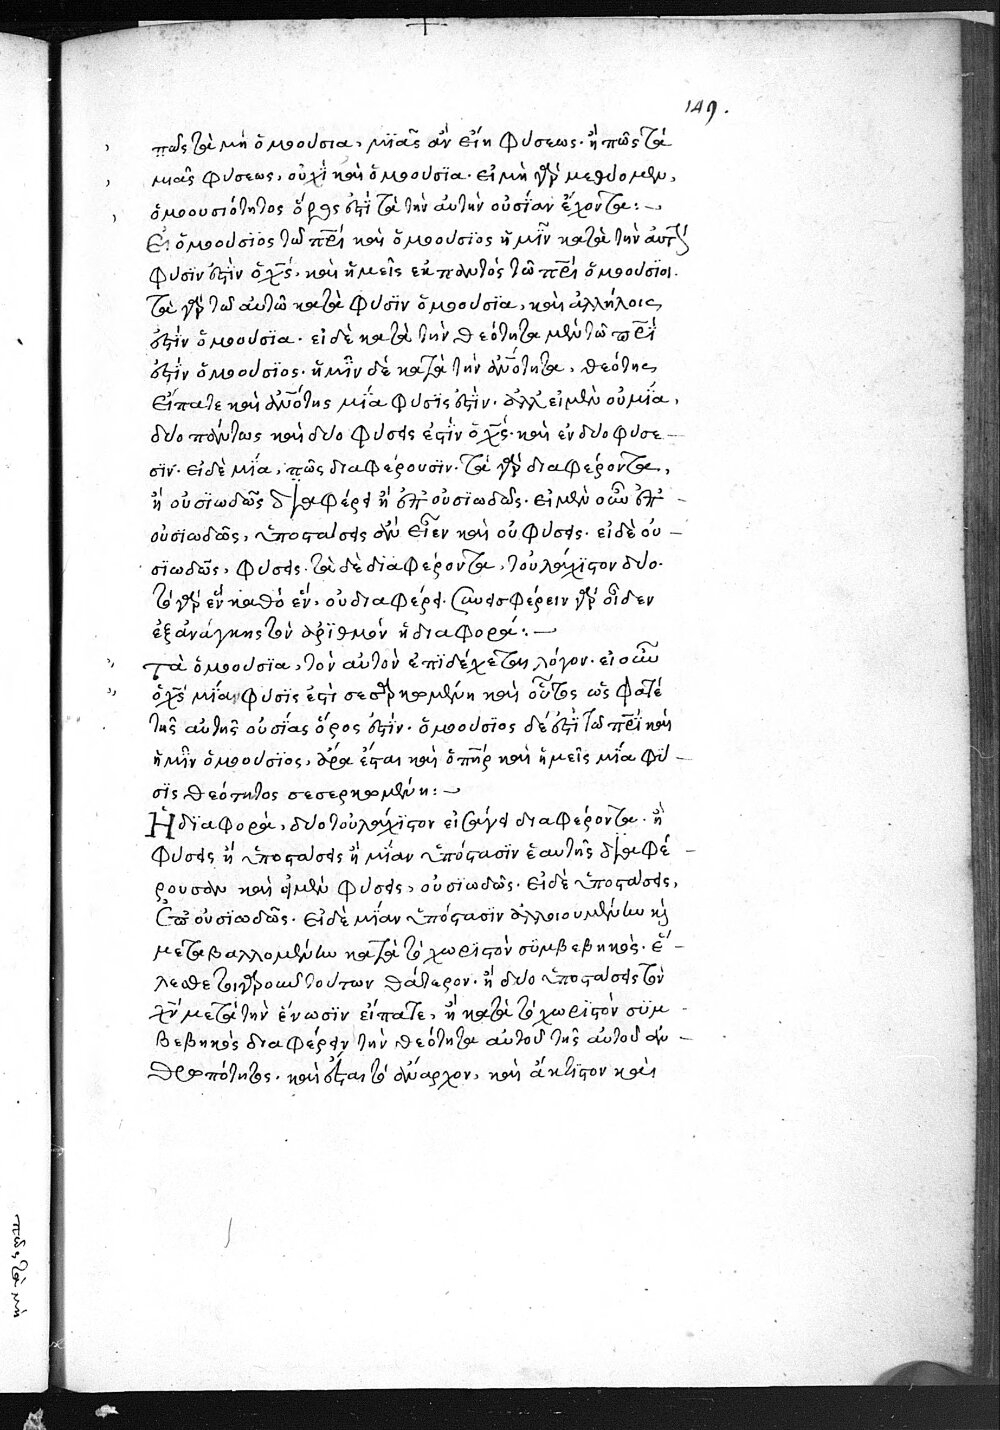 149.
πῶς τὰ μὴ ὁμοούσια, μϊᾶς ἂν εἴη φύσεως· ἢ πῶς τὰ
μιᾶς φύσεως, οὐχὶ καὶ ὁμοούσϊα· εἰ μὴ γὰρ μεθύομεν,
ὁμοουσιότητος ὅρος ἐστὶ τὰ τὴν αὐτὴν οὐσίαν ἔχοντα:—
Εἰ ὁμοούσϊος τῷ πρὶ καὶ ὁμοούσϊος ἡμῖν κατὰ τὴν αὐτὴν
φύσϊν ἐστὶν ὁ χς, καὶ ἡμεῖς ἐκ παντὸς τῷ πρὶ ὁμοούσϊοι.
τὰ γὰρ τῷ αὐτῷ κατὰ φύσϊν ὁμοούσϊα, καὶ ἀλλήλοις
ἐστὶν ὁμοούσϊα· εἰ δὲ κατὰ τὴν θεότητα μὲν τῷ πρὶ
ἐστὶν ὁμοούσϊος· ἡμῖν δὲ κατὰ τὴν ἀνότητα, θεότης
εἴπατε καὶ ἀνότης μία φύσϊς ἐστὶν· ἀλλ' εἰ μὲν οὐ μία,
δυο πάντως καὶ δυο φύσεις ἐστὶν ὁ χς· καὶ ἐν δυο φύσε-
σϊν· εἰ δὲ μία, πῶς διαφέρουσϊν· τὰ γὰρ διαφέροντα,
ἢ οὐσϊωδῶς διαφέρει ἢ ἐπουσϊωδῶς· εἰ μὲν οὖν ἐπ-
ουσϊωδῶς, ὑποστάσεις ἂν εἶεν καὶ οὐ φύσεις· εἰ δὲ οὐ-
σϊωδῶς, φύσεις· τὰ δὲ διαφέροντα, τουλάχϊστον δυο·
τὸ γὰρ ἓν καθὸ ἓν, οὐ διαφέρει· συνεισφέρειν γὰρ οἶδεν
ἐξ ἀνάγκης τὸν ἀρϊθμὸν ἡ διαφορά:—
τὰ ὁμοούσϊα, τὸν αὐτὸν ἐπϊδέχεται λόγον· εἰ οὖν
ὁ χς μία φύσϊς ἐστὶ σεσαρκωμένη καὶ οὗτος ὡς φατέ
τῆς αὐτῆς οὐσίας ὅρος ἐστὶν· ὁμοούσϊος δέ ἐστι τῷ πρὶ καὶ
ἡμῖν ὁμοούσϊος, ἄρα ἔσται καὶ ὁ πὴρ καὶ ἡμεῖς μία φύ-
σϊς θεότητος σεσαρκωμένη:—
Ἡ δϊαφορὰ, δυο τοὐλάχϊστον εἰσάγει διαφέροντα· ἢ
φύσεις ἢ ὑποστάσεις ἢ μίαν ὑπόστασϊν ἑαυτῆς διαφέ-
ρουσαν καὶ εἰ μὲν φύσεις, οὐσϊωδῶς· εἰ δὲ ὑποστάσεις,
ἐπουσϊωδῶς· εἰ δὲ μίαν ὑπόστασϊν ἀλλοιουμένην καὶ
μεταβαλλομένην κατὰ τὸ χωρϊστὸν συμβεβηκὸς· ἕ-
λεσθε τοιγαροῦν τούτων θάτερον· ἢ δυο ὑποστάσεις τὸν
χν μετὰ τὴν ἕνωσϊν εἴπατε, ἢ κατὰ τὸ χωρϊστὸν συμ-
βεβηκὸς διαφέρειν τὴν θεότητα αὐτοῦ τῆς αὐτοῦ ἀν-
θρωπότητος. καὶ ἔσται τὸ ἄναρχον, καὶ ἄκτϊστον καὶ
πῶς τὰ μὴ